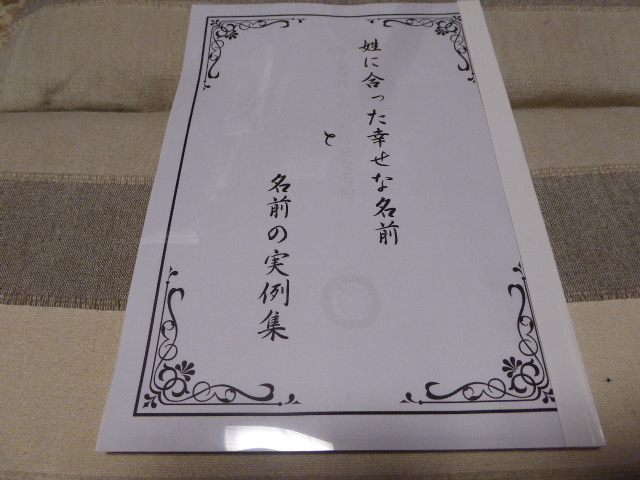 姓に合った幸せな名前
と
名前の実例集